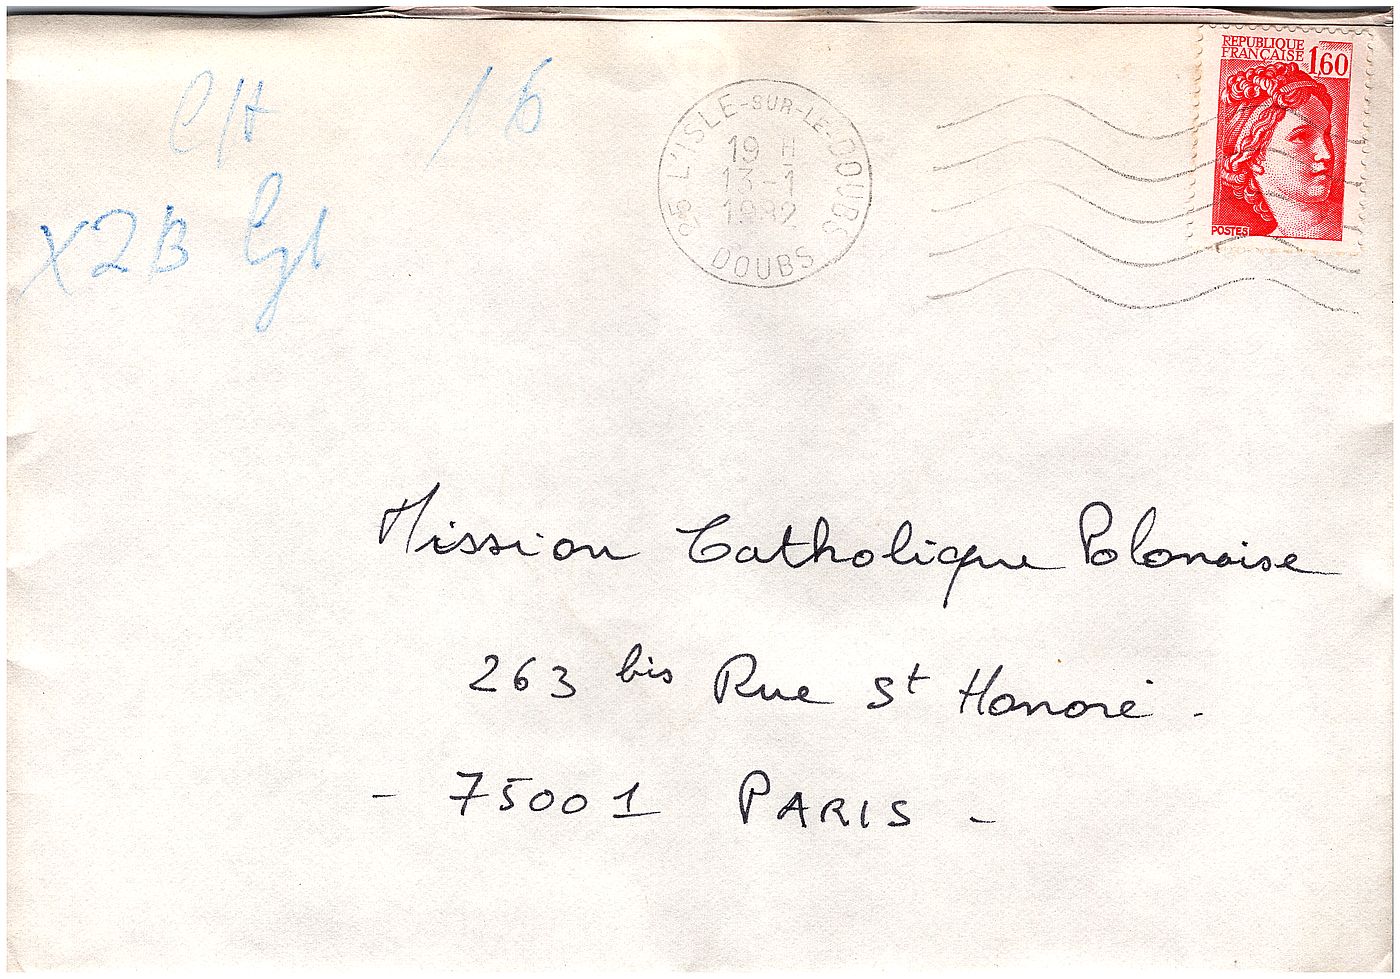 C/H 16
X2B
25 L'ISLE-SUR-LE-DOUBS
19 H
13-1
1982
DOUBS
REPUBLIQUE
FRANÇAISE 1,60
POSTES
Mission Catholique Polonaise
263 bis Rue St Honoré.
- 75001 PARIS -